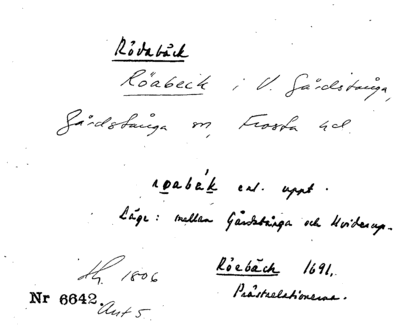 Rödabäck
Röabeck i V. Gårdstånga,
Gårdstånga sn, Frosta hd.
enl. uppt.
Läge: mellan Gårdstånga och Hviderup.
Hg. 1806
Röebäck 1691.
Nr 6642. Prästrelationerna.
Ant 5